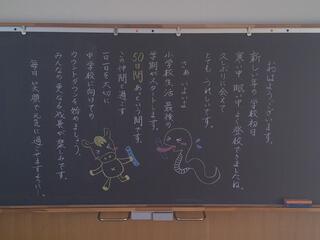 おはようございます。
新しい年の学校初日
寒い中、眠い中、よく登校できましたね。
久しぶりに会えて
とてもうれしいです。
さあ、いよいよ
小学校生活最後の
学期がスタートします。
50日間あっという間です。
この仲間と過ごす
一日一日を大切に
中学校に向けての
カウントダウンを始めましょう。
みんなの更なる成長が楽しみです。
毎日、笑顔で元気に過ごせますように…